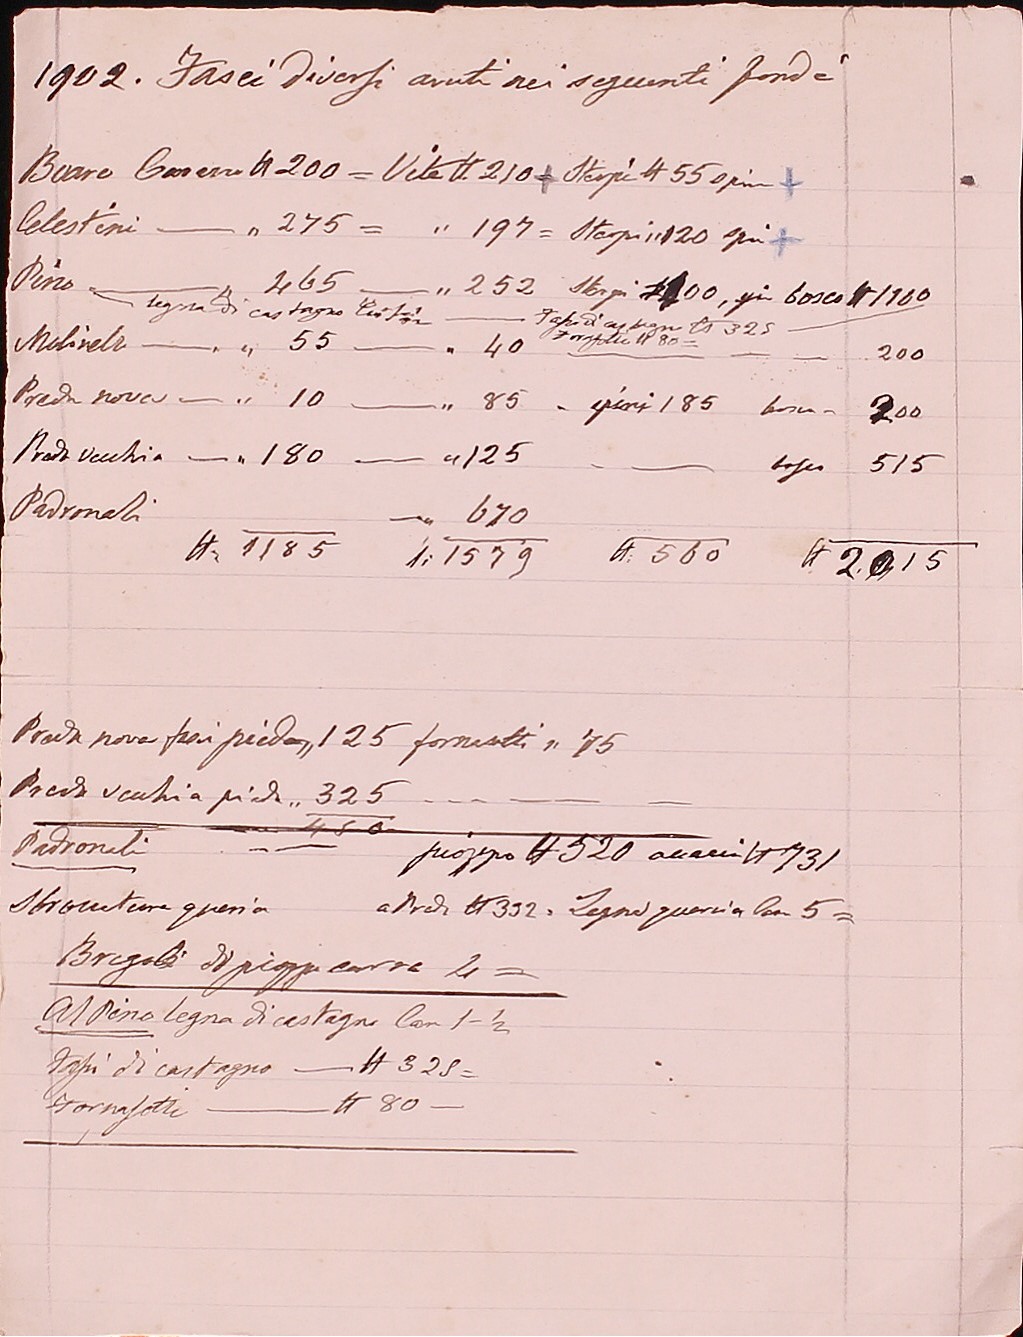 1902. Fasci diversi avuti nei seguenti fondi
Boaro Casereno N 200 = Vite N 210 + Sterpi N 55 spini +
Celestini — „ 275 = „ 197 = Sterpi „ 120 spi +
Pino — „ 465 — „ 252 Sterpi 100, più bosco N 1100
legna di castagno — Fassi di castagno N 325
Fornasotti N 80 =
Molinello — „ 55 — „ 40 — — — 200
Preda nova — „ 10 — „ 85 - spini 185 bosco - 200
Preda vecchia — „ 180 — „ 125 - — bosco 515
Padronali — „ 670
N: 1185 N: 1579 N: 560 N 2.015
Preda nova piede „ 125 fornasotti „ 75
Preda vecchia piede „ 325 — — —
450
Padronali — pioppo N 520 acacia N 731
Sbrocatura quercia N 392. Legna quercia Car 5 =
di pioppo carra 2 =
Al Pino legna di castagno Car 1 - ½
Fassi di castagno — N 325 =
Fornasotti — N 80 —